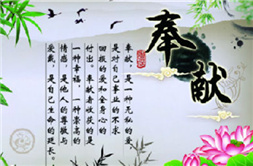 奉献
奉献，是一种无私的爱
是对自己事业的不求
回报的爱和全身心的
付出。奉献者收获的是
一种幸福，一种崇高的
情感，是他人的尊敬与
爱戴，是自己生命的延长。